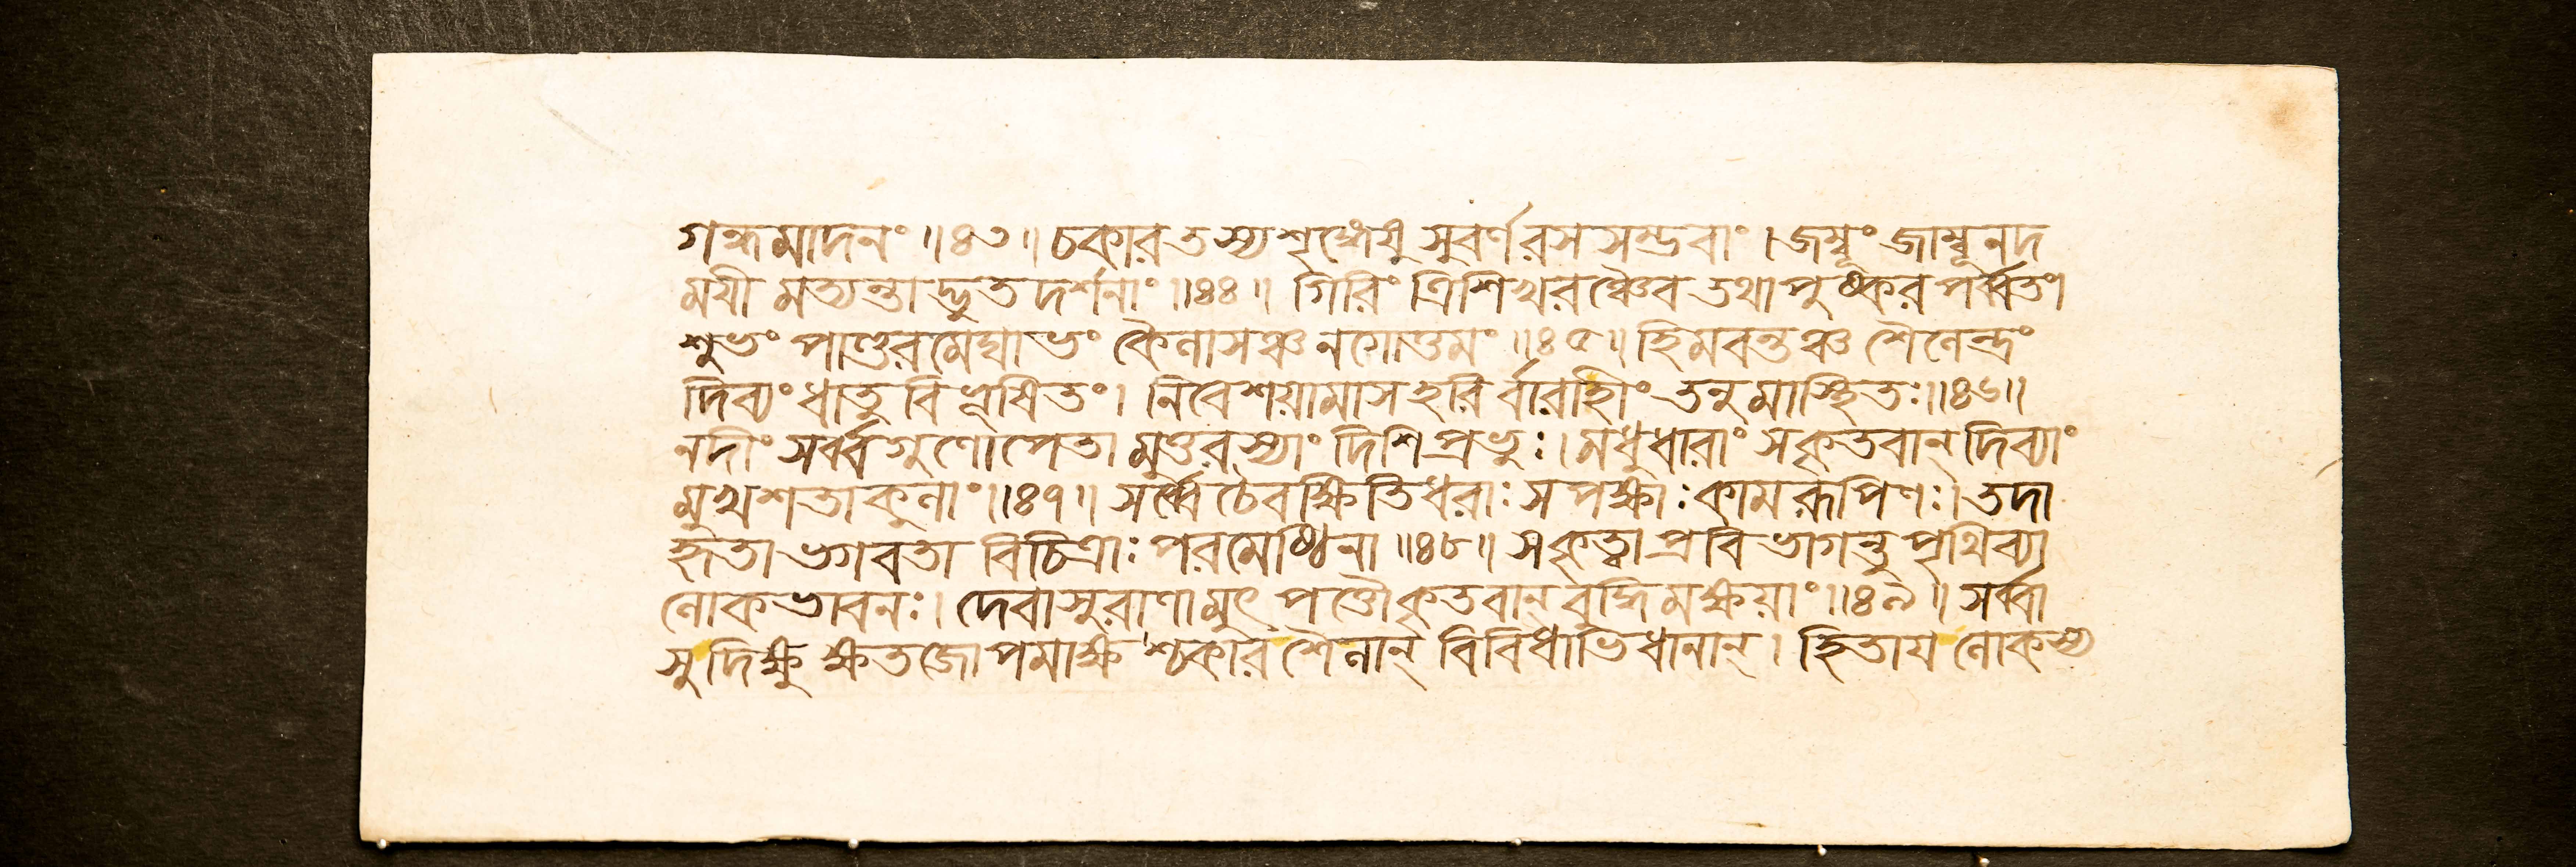 গন্ধমাদনং ॥৪৩॥ চকার তস্য শৃঙ্গেষু সুবর্ণরসসম্ভবাং । জম্বূং জাম্বূনদ
ময়ী মত্যন্তাদ্ভুত দর্শনাং ॥৪৪॥ গিরিং ত্রিশিখরঞ্চৈব তথা পুষ্কর পর্ব্বতং।
শুভং পাণ্ডুরমেঘাভং কৈলাসঞ্চ নগোত্তমং ॥৪৫॥ হিমবন্তঞ্চ শৈলেন্দ্রং
দিব্যং ধাতু বিভূষিতং। নিবেশয়ামাস হরি র্বারাহীং তনুমাস্থিতঃ॥৪৬॥
নদীং সর্ব্ব গুণোপেতা মুত্তরস্যাং দিশি প্রভুঃ। মধুধারাং স কৃতবান্ দিব্যাং
মুখশতাকুলাং ॥৪৭॥ সর্ব্বে চৈব ক্ষিতিধরাঃ সপক্ষাঃ কামরূপিণঃ। তদা
কৃতা ভগবতা বিচিত্রাঃ পরমেষ্ঠিনা ॥৪৮॥ স কৃত্বা প্রবিভাগন্তু পৃথিব্যা
লোকভাবনঃ। দেবাসুরাণামুৎ পত্তৌ কৃতবান্ বুদ্ধিমক্ষয়াং ॥৪৯॥ সর্ব্বা
সু দিক্ষু ক্ষতজোপমাক্ষ শ্চকার শৈলান্ বিবিধাভিধানান্। হিতায় লোকস্য